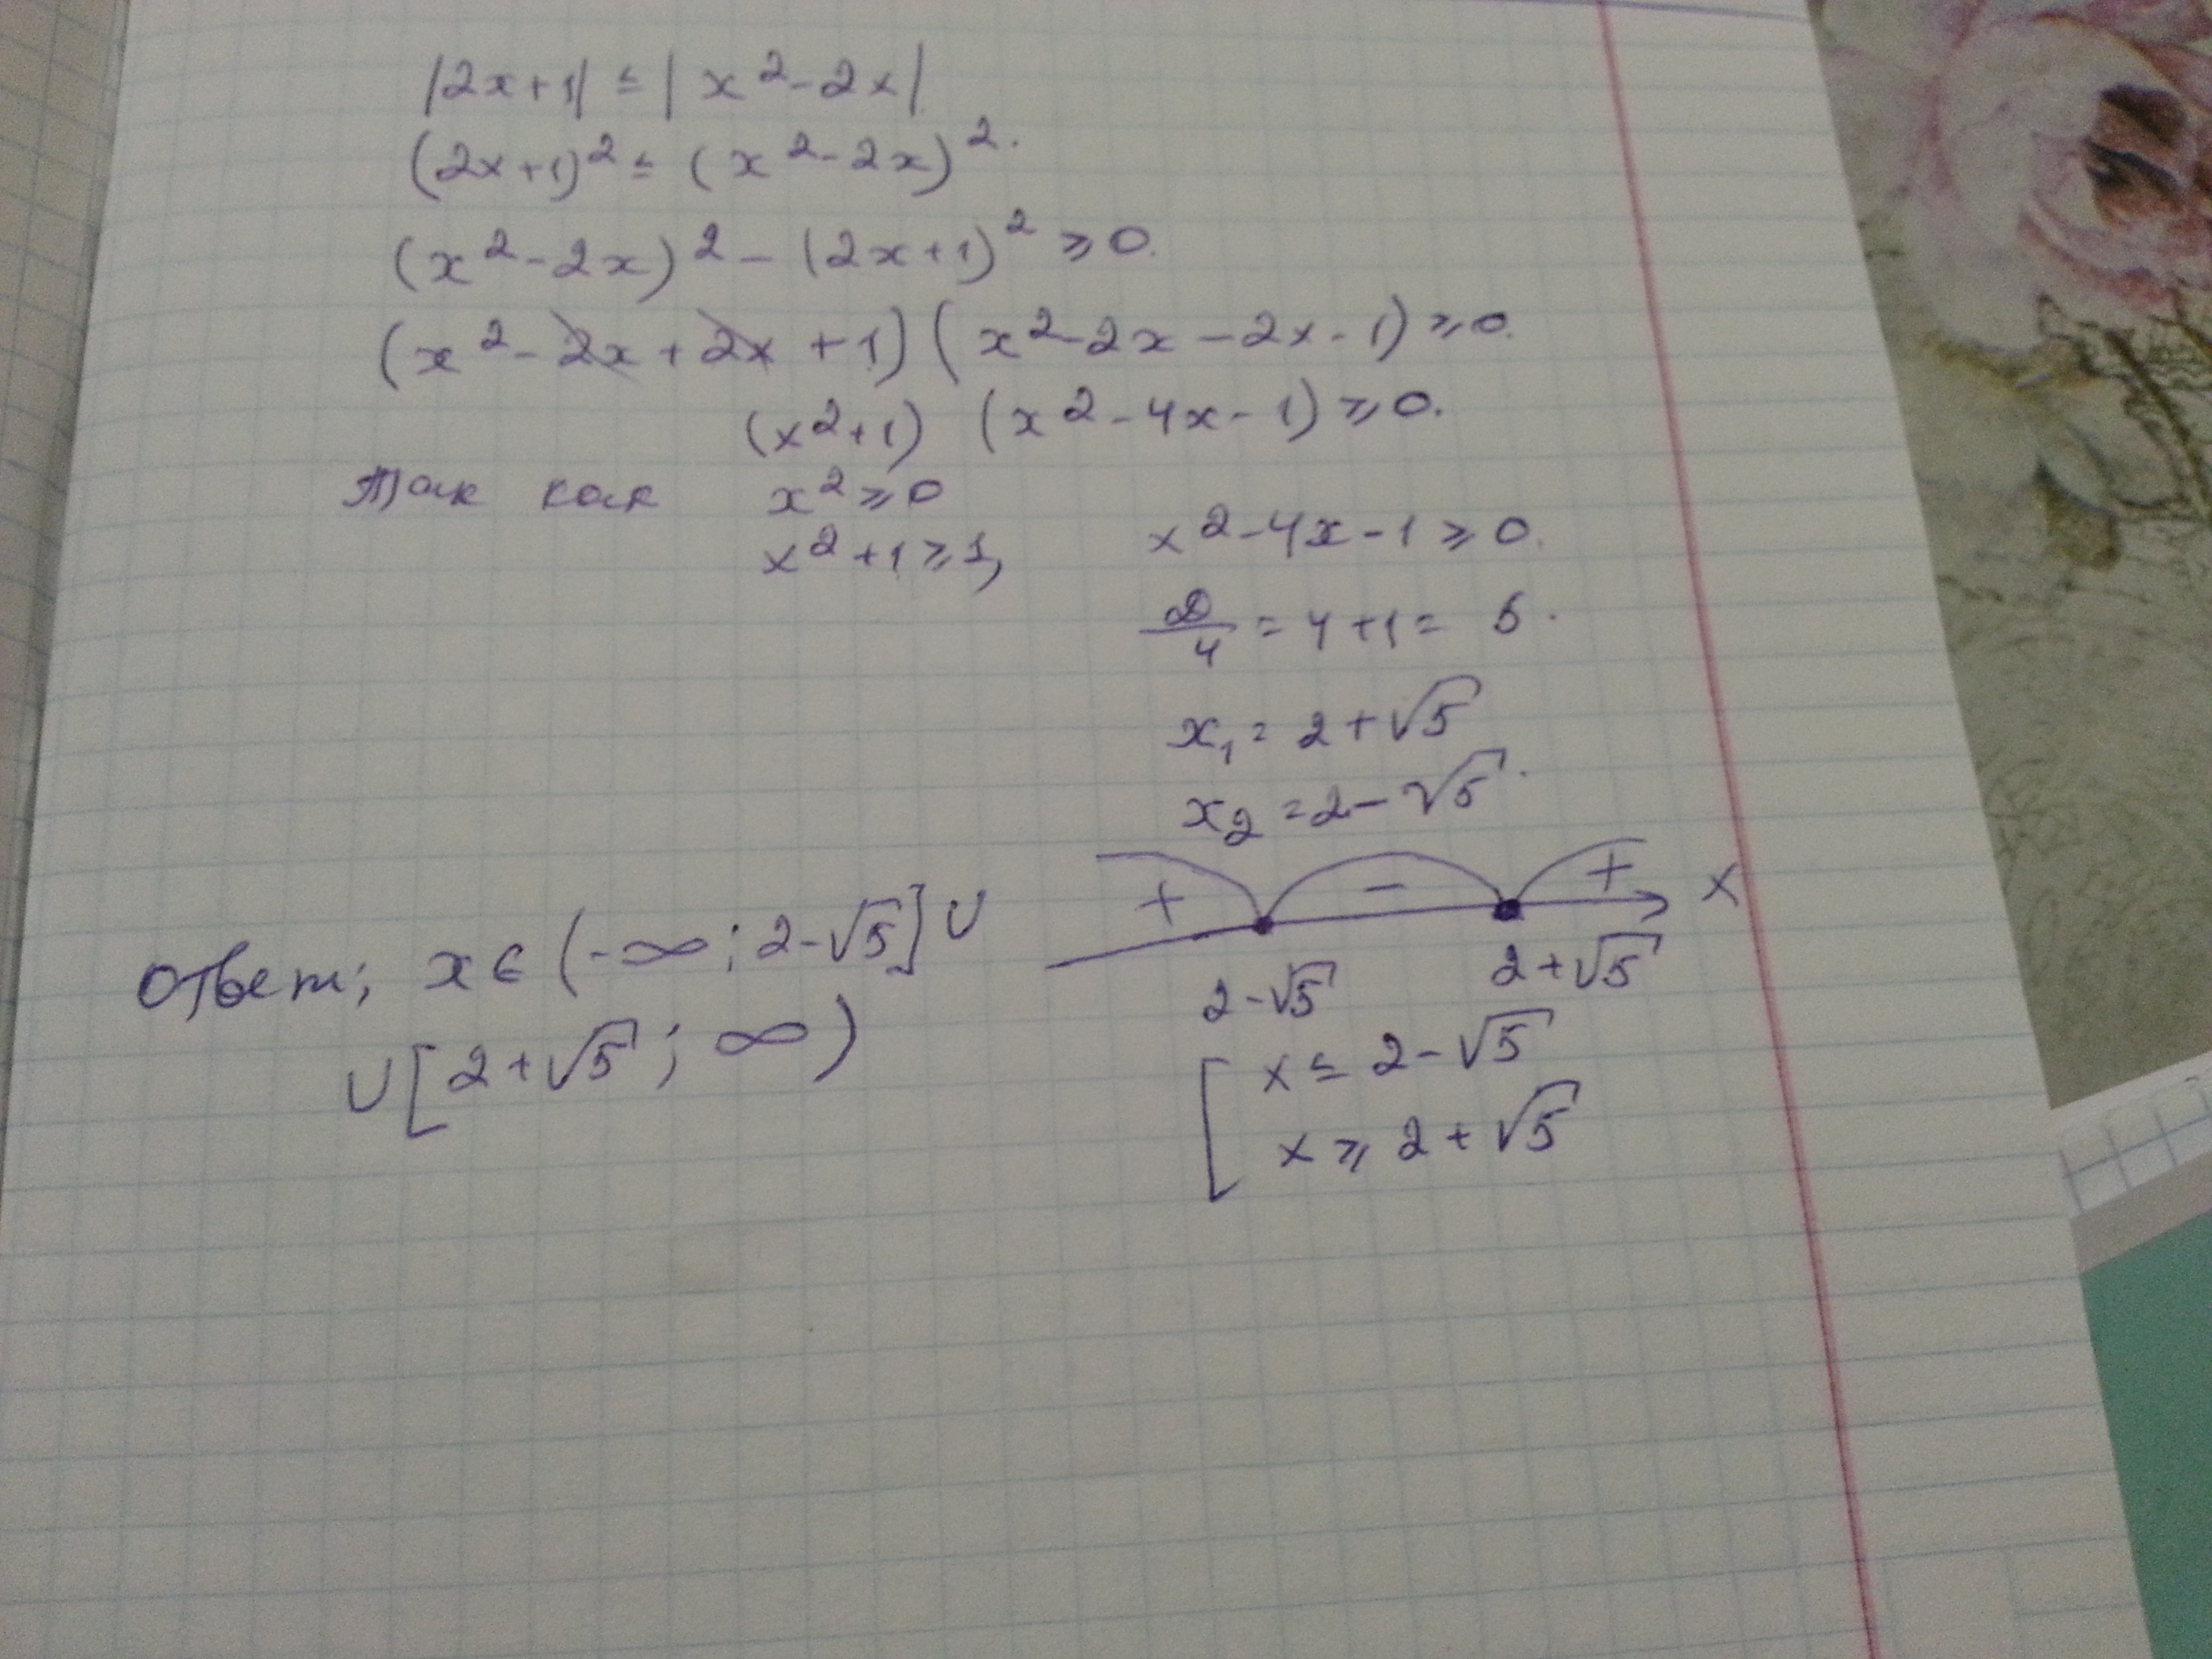 |2x+1| ≤ |x²-2x|
(2x+1)² ≤ (x²-2x)².
(x²-2x)² - (2x+1)² ≥ 0.
(x²-2x+2x+1)(x²-2x-2x-1) ≥ 0.
(x²+1) (x²-4x-1) ≥ 0.
Так как x² ≥ 0
x²+1 ≥ 1,
x²-4x-1 ≥ 0.
D/4 = 4+1 = 5.
x₁ = 2+√5
x₂ = 2-√5.
+ - + x
2-√5 2+√5
[ x ≤ 2-√5
x ≥ 2+√5
Ответ; x ∈ (-∞; 2-√5] ∪
∪ [2+√5; ∞)